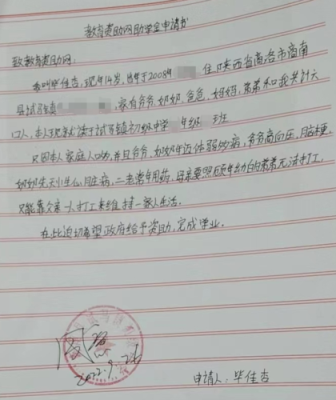 教育资助网助学金申请书
致教育资助网:
本人叫毕佳杏,现年14岁,出生于2008年 住陕西省商洛市商南
县试马镇 家有爷爷、奶奶、爸爸、妈妈、弟弟和我共六
口人,本人现就读于试马镇初级中学 年级 班
只因本人家庭人口多,并且爷爷、奶奶年迈体弱多病,爷爷高血压、脑梗,
奶奶先天小心脏病,二老常年用药,母亲要照顾年幼的弟弟无法打工,
只能靠父亲一人打工来维持一家人生活。
在此迫切希望政府给予资助,完成学业。
2022.9.26
申请人:毕佳杏